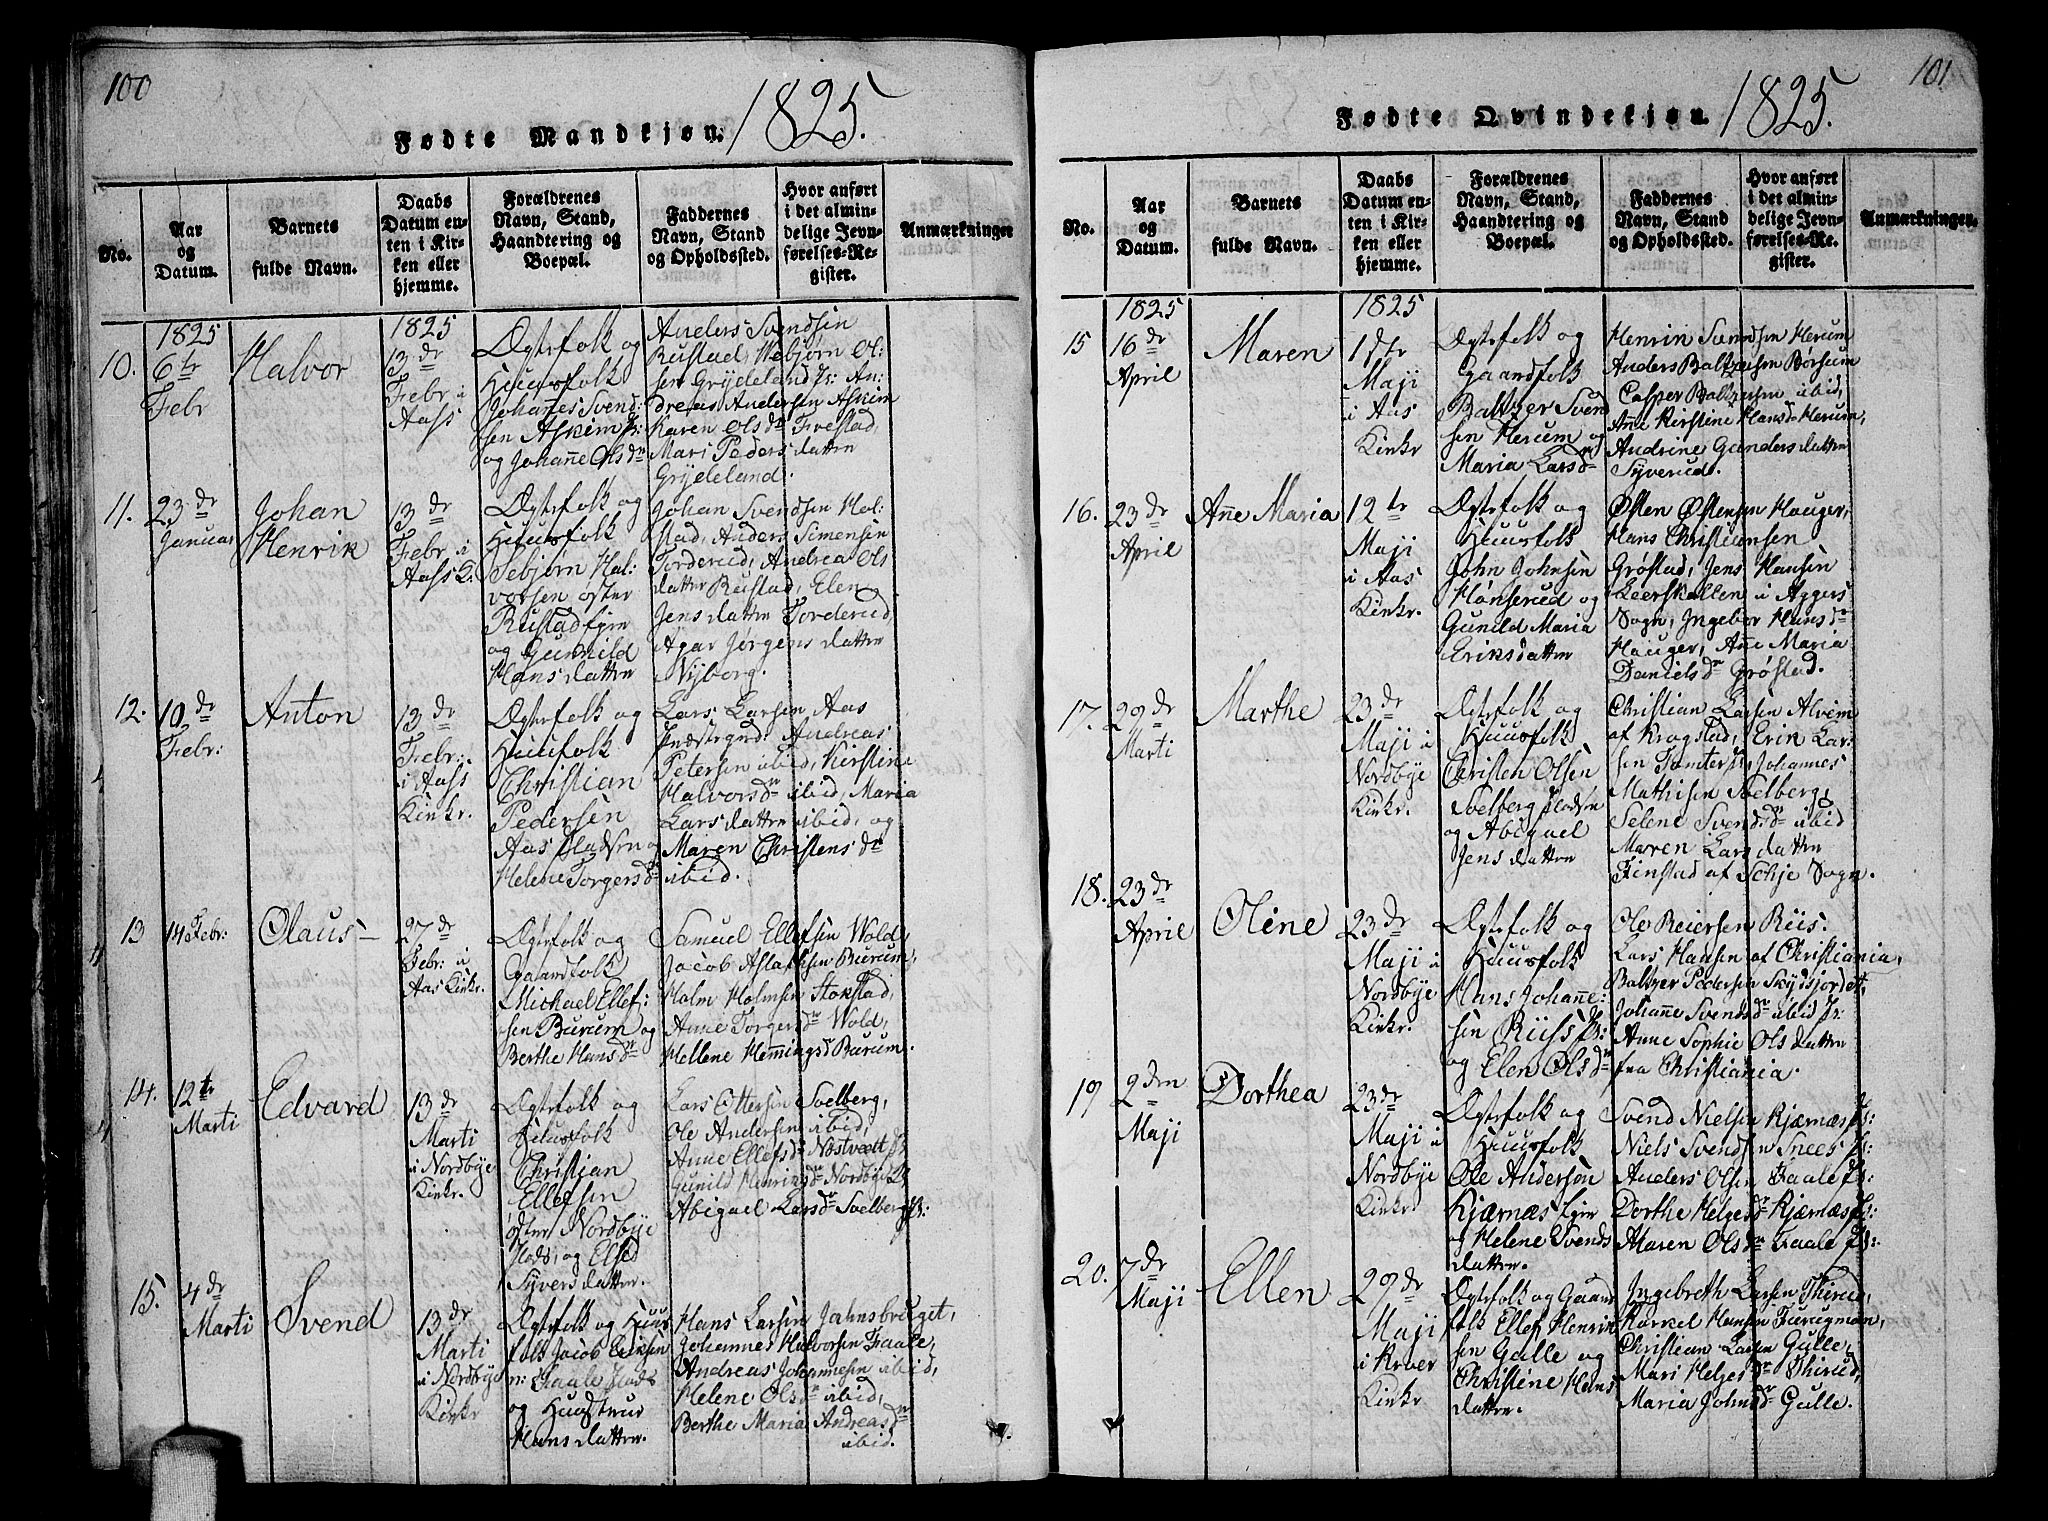 100
Fødte Mandkjøn. 1825.
No.
Aar
og
Datum.
Barnets
fulde Navn.
Daabs
Datum en-
ten i Kir-
ken eller
hjemme.
Forældrenes
Navn, Stand,
Haandtering og
Boepæl.
Faddernes
Navn, Stand
og Opholdssted.
Hvor anført
i det almin-
delige Jevn-
førelses-Re-
gister.
Anmærkninger
10.
1825
6te
Febr
Halvor
1825
13de
Febr i
Aass
Ægtefolk og
Huusfolk
Johanes Svend:
sen Askim Pl:
og Johañe Olsdr
Anders Svendsen
Rustad, Webjørn Ol:
sen Grydeland Pl: An:
dreas Andersen Askim
Karen Olsdr Frestad,
Mari Pedersdatter
Grydeland.
11.
23de
Januar
Johan
Henrik
13de
Febr. i
Aass K:
Ægtefolk og
Huusfolk
Sebjørn Hal:
vorsen øster
Rustad Ejer
og Gunnild
Hansdatter
Johan Svendsen Hol:
stad, Anders Simensen
Forderud, Andrea Ols
datter Rustad, Elen
Jensdatter Forderud,
Agar Jørgensdatter
Nyborg.
12.
10de
Febr:
Anton
13de
Febr:
i Aass
Kirke.
Ægtefolk og
Huusfolk
Christian
Pedersen
Aas Pladsen og
Helene Torgersdr
Lars Larsen Aas
Præstegrd: Andreas
Petersen ibid, Kirstine
Halvorsdr ibid, Maria
Larsdatter ibid, og
Maren Christensdr
ibid.
13
14 Febr:
Olaus
27de
Febr: i
Aas Kirke.
Ægtefolk og
Gaardfolk
Michael Ellef:
sen Burum og
Berthe Hansdr
Samuel Ellefsen Wold,
Jacob Aslachsen Burum,
Holm Holmsen Stokstad,
Anne Torgersdr Wold,
Hellene Hemmingsdr Burum.
14.
12te
Marti
Edvard
13de
Marti
i Nordbye
Kirke.
Ægtefolk og
Huusfolk
Christian
Ellefsen
øster Nordbye
Plads, og Elsed
Syversdatter.
Lars Ottersen Solberg,
Ole Andersen ibid,
Anne Ellefsdr Nøstvedt Pl
Gunild Henriksdr Nordbye Pl
Abigael Larsdr Solberg Pl:
15.
4de
Marti
Svend
13de
Marti
i Nordbye
Kirke
Ægtefolk og Huus
folk Jacob Eriksen
n: Faale Plads
og Huustrue
Hansdatter.
Hans Larsen Jahnsbraatet,
Johannes Halvorsen Faale,
Andreas Johannesen ibid,
Helene Olsdr ibid,
Berthe Maria Andreasdr
ibid.
101
Fødte Qvindekjøn. 1825.
No.
Aar
og
Datum.
Barnets
fulde Navn.
Daabs
Datum en-
ten i Kir-
ken eller
hjemme.
Forældrenes
Navn, Stand,
Haandtering og
Boepæl.
Faddernes
Navn, Stand
og Opholdssted.
Hvor anført
i det almin-
delige Jevn-
førelses-Re-
gister.
Anmærkninger.
15
1825
16de
April
Maren
1825
1ste
Maji
i Aas
Kirke
Ægtefolk og
Gaardfolk
Baltzer Svend
sen Herum og
Maria Larsdr
Henrik Svendsen Herum
Anders Baltzersen Borsum
Casper Baltzersen ibid,
Ane Kirstine Hansdr Herum,
Andrine Gundersdatter
Syverud.
16.
23de
April
Añe Maria
12te
Maji
i Aas
Kirke.
Ægtefolk og
Huusfolk
John Johnsen
Hønserud og
Gunild Maria
Eriksdatter
Østen Østensen Hauger,
Hans Christiansen
Grøstad, Jens Hansen
Leerskallen i Aggers
Sogn, Ingebor Hansdr
Hauger, Añe Maria
Danielsdr Grøstad.
17.
29de
Marti
Marthe
23de
Maji i
Nordbye
Kirke.
Ægtefolk og
Huusfolk
Christen Olsen
Solberg Pladsen
og Abigael
Jensdatter
Christian Larsen Alvem
af Kragstad, Erik Lar:
sen Tomter Pl, Johannes
Mathisen Solberg,
Selene Svendsdr ibid
Maren Larsdatter
Finstad af Schje Sogn.
18.
23de
April
Oline
23de
Maji i
Nordbye
Kirke.
Ægtefolk og
Huusfolk
Hans Johañe:
sen Riis Pl:
og Elen Olsdr
Ole Reiersen Riis.
Lars Hansen af Christiania,
Baltzer Pedersen Skydsjordet,
Johañe Svendsdr ibid Pl:
Anne Sophie Olsdatter
fra Christiania.
19
2den
Maji
Dorthea
23de
Maji i
Nordbye
Kirke.
Ægtefolk og
Huusfolk
Ole Andersøn
Kjærnæs Ejer
og Helene Svends
datter.
Svend Nielsen Kjærnæs Pl:
Niels Svendsen Snees Pl:
Anders Olsen Faale Pl:
Dorthe Helgesdr Kjærnæs Pl:
Maren Olsdr Faale Pl:
20.
7de
Maji
Ellen
29de
Maji
i Kroer
Kirke
Ægtefolk og Gaard
folk Ellef Henrik
sen Gulle og
Christine Hans
datter.
Ingebreth Larsen Thirud,
Karkel Hansen Furuemoen,
Christian Larsen Gulle,
Mari Helgesdr Thirud,
Maria Johnsdr Gulle.